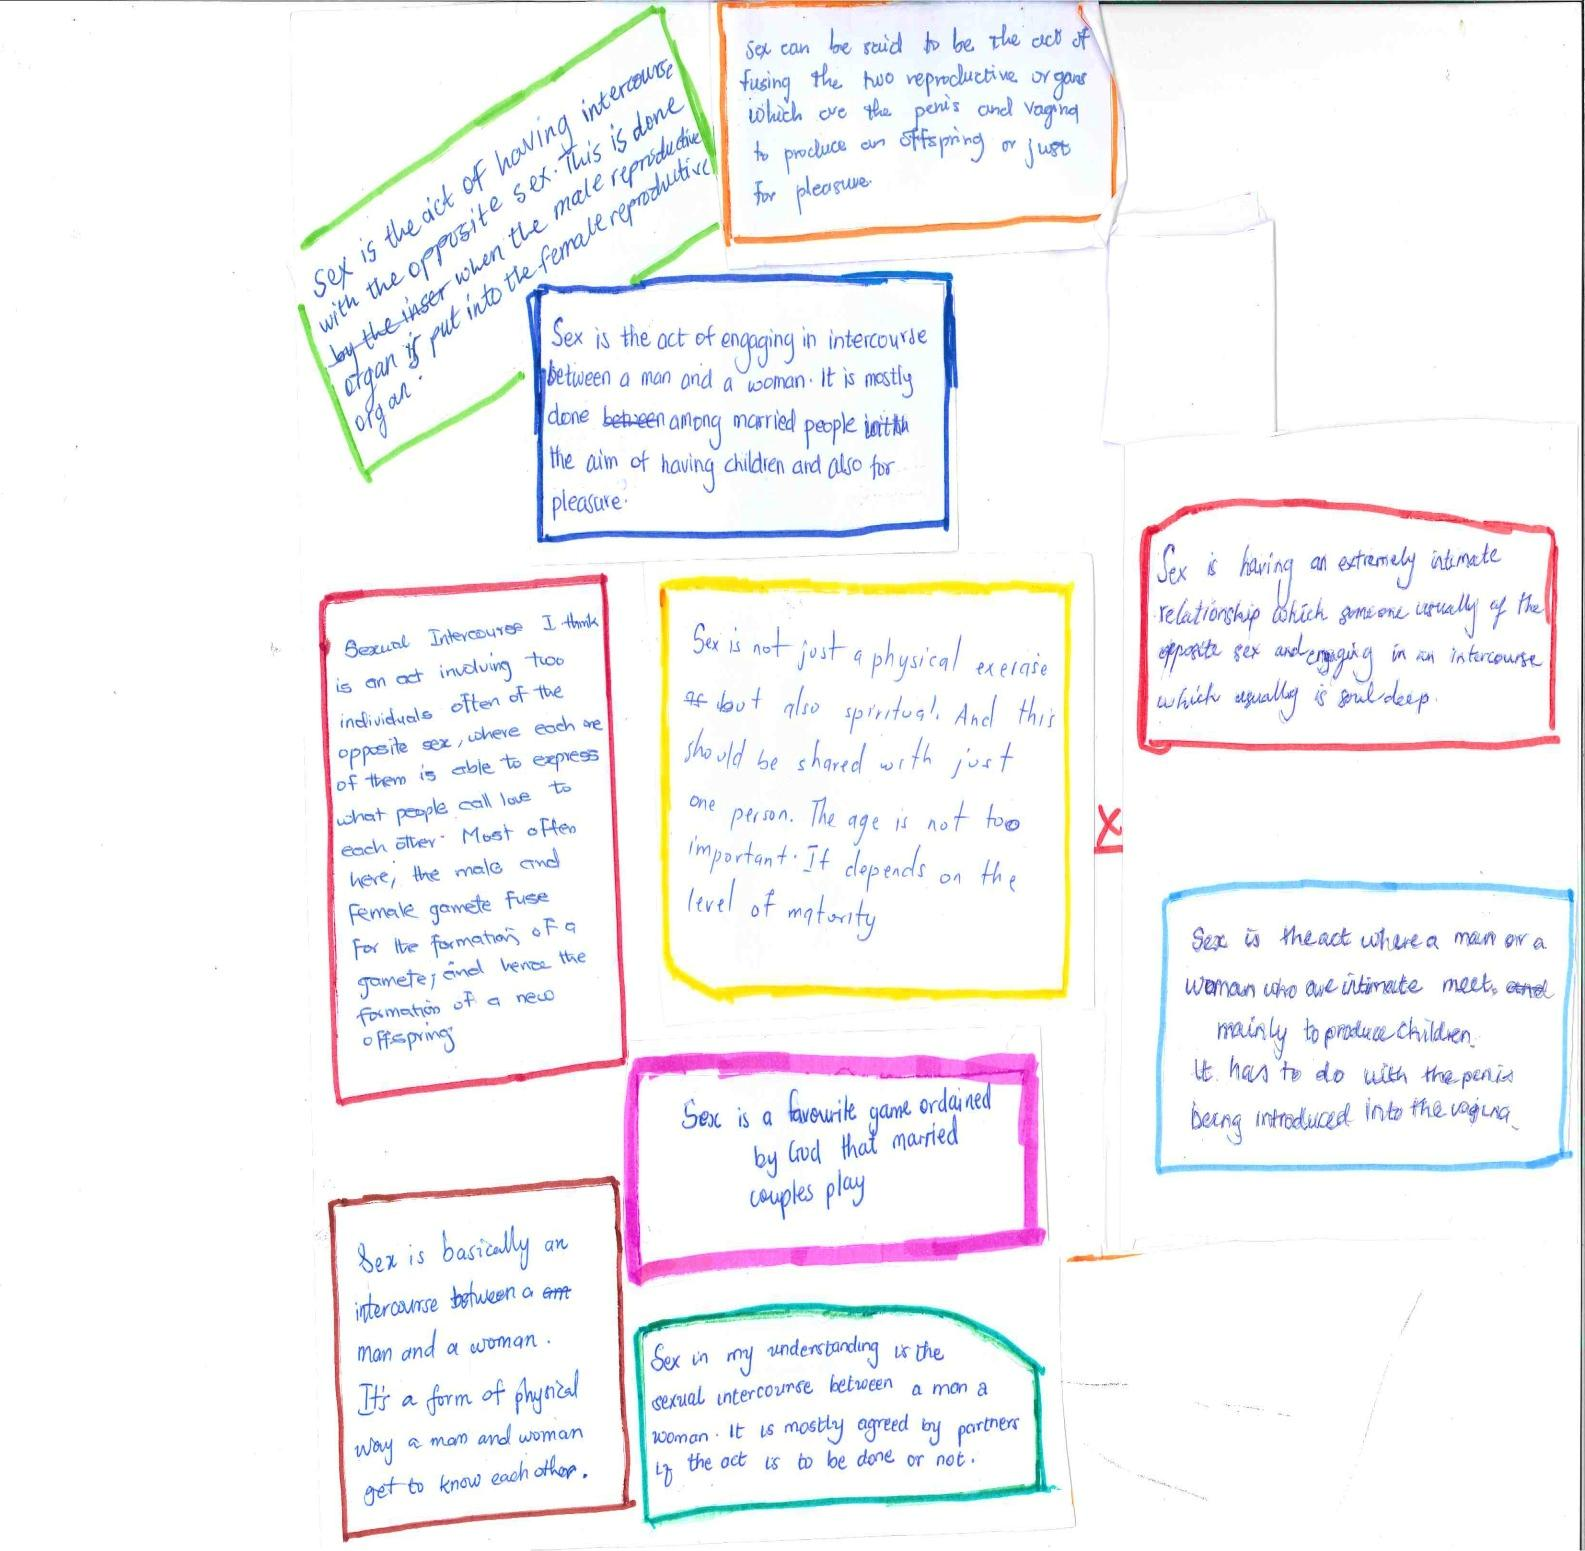 Sex is the act of having intercourse
with the opposite sex. This is done
by the inser when the male reproductive
organ is put into the female reproductive
organ.
Sex can be said to be the act of
fusing the two reproductive organs
which are the penis and vagina
to produce an offspring or just
for pleasure.
Sex is the act of engaging in intercourse
between a man and a woman. It is mostly
done between among married people with
the aim of having children and also for
pleasure.
Sex is having an extremely intimate
relationship which someone usually of the
opposite sex and engaging in an intercourse
which usually is soul-deep.
Sexual Intercourse I think
is an act involving two
individuals often of the
opposite sex, where each one
of them is able to express
what people call love to
each other. Most often
here, the male and
female gamete fuse
for the formation of a
gamete; and hence the
formation of a new
offspring
Sex is not just a physical exercise
but also spiritual. And this
should be shared with just
one person. The age is not too
important. It depends on the
level of maturity
X
Sex is the act where a man or a
woman who are intimate meet. and
mainly to produce children.
It has to do with the penis
being introduced into the vagina.
Sex is a favourite game ordained
by God that married
couples play
Sex is basically an
intercourse between a am
man and a woman.
It's a form of physical
way a man and woman
get to know each other.
Sex in my understanding is the
sexual intercourse between a man a
woman. It is mostly agreed by partners
if the act is to be done or not.